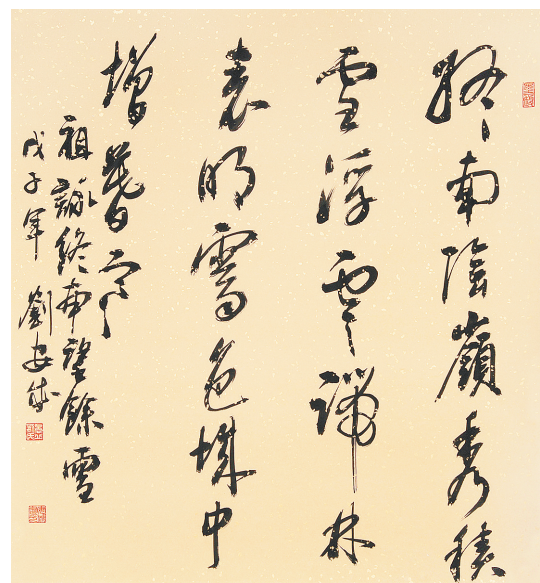 終南陰嶺秀積
雪浮雲端林
表明霽色城中
增暮寒
祖詠終南望餘雪
戊子年 劉安成